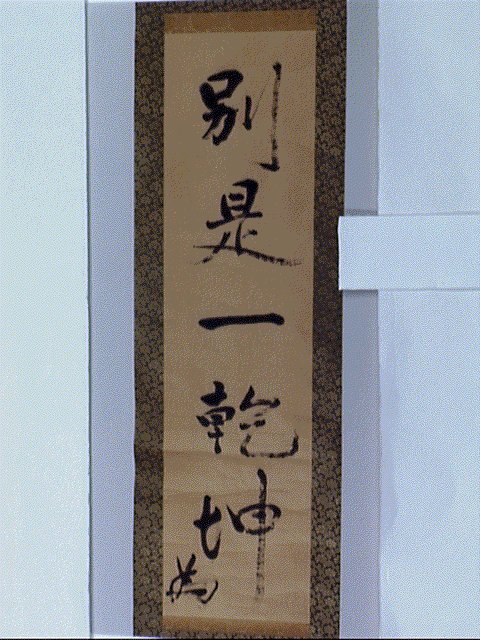 別是一乾坤